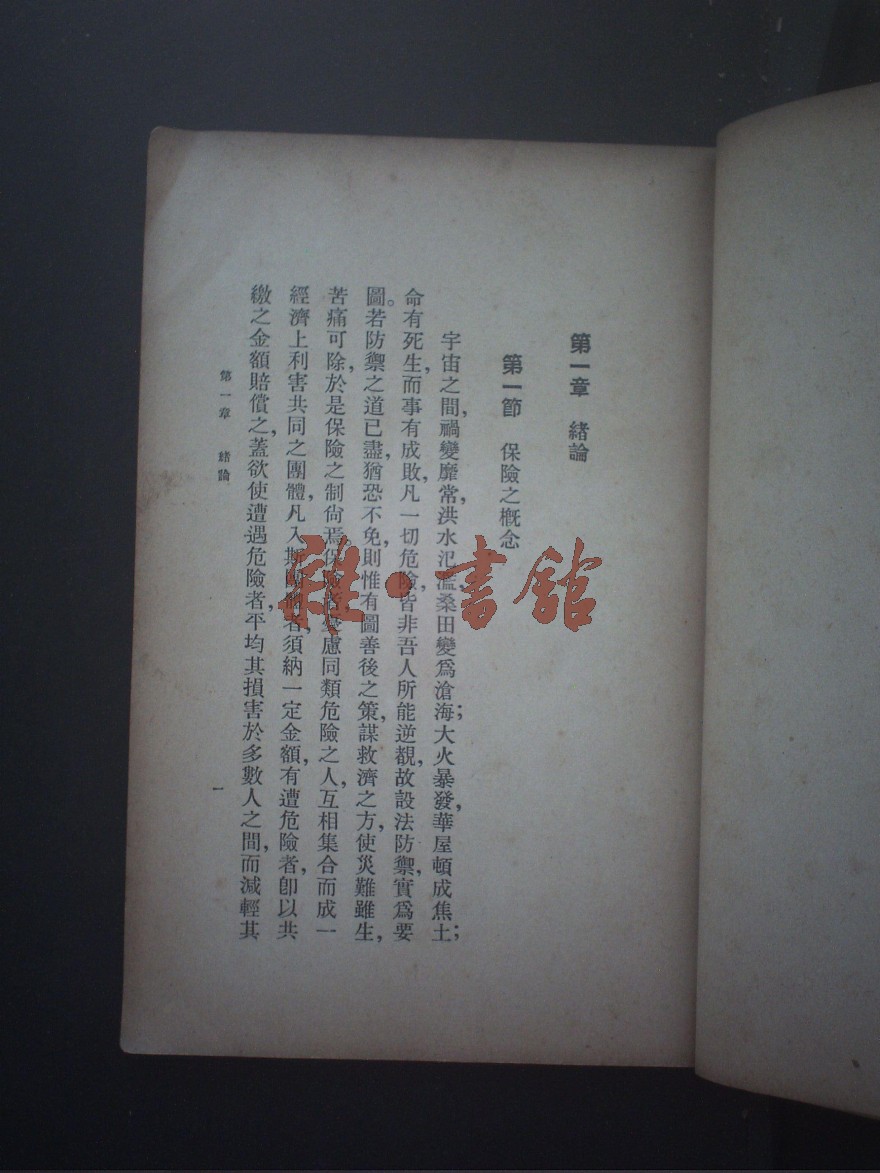 第一章　緒論
第一節　保險之概念
宇宙之間，禍變靡常，洪水氾濫，桑田變爲滄海；大火暴發，華屋頓成焦土；
命有死生，而事有成敗，凡一切危險，皆非吾人所能逆覩，故設法防禦，實爲要
圖。若防禦之道已盡，猶恐不免，則惟有圖善後之策，謀救濟之方，使災難雖生，
苦痛可除，於是保險之制尙焉。保險慮同類危險之人，互相集合而成一
經濟上利害共同之團體，凡入斯團體者，須納一定金額，有遭危險者，卽以共
繳之金額賠償之，蓋欲使遭遇危險者，平均其損害於多數人之間，而減輕其
第一章　緒論
一
雜·書館